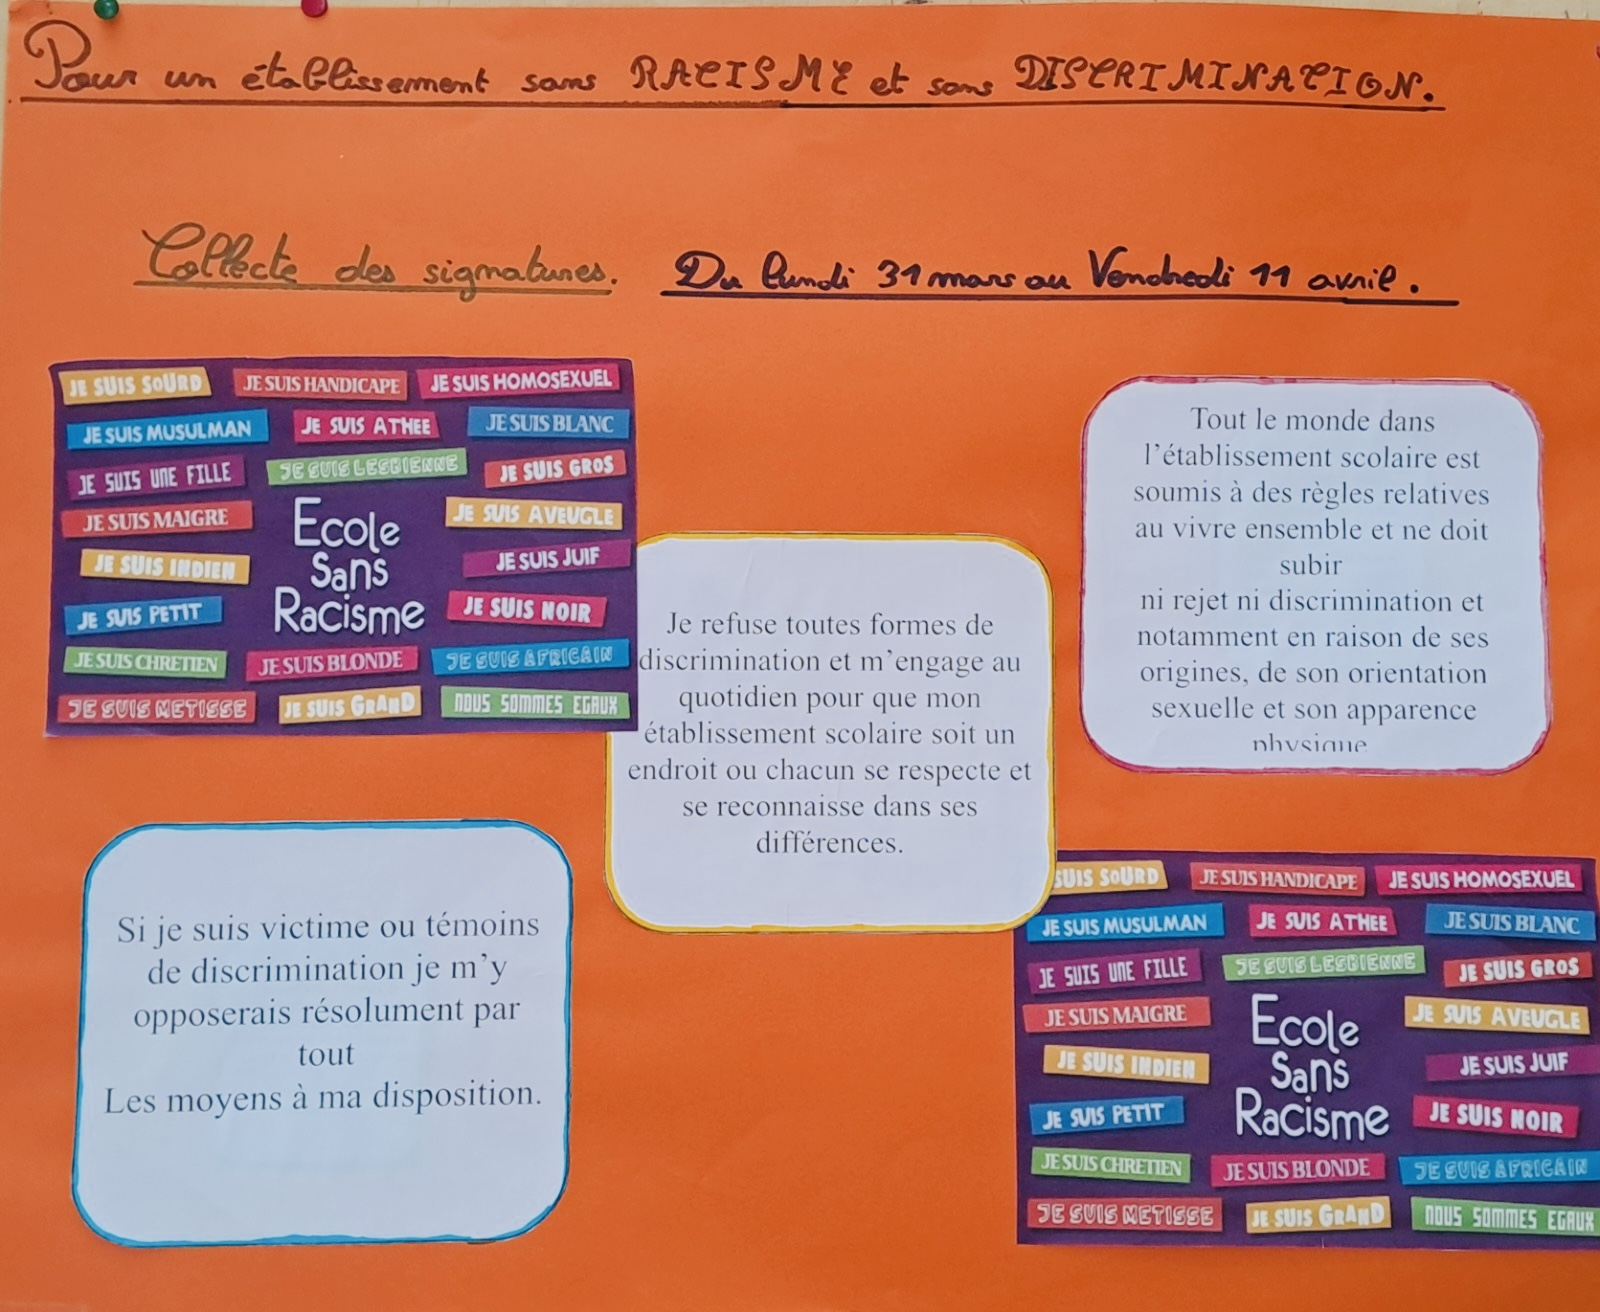 Pour un établissement sans RACISME et sans DISCRIMINATION.
Collecte des signatures. Du lundi 31 mars au Vendredi 11 avril.
JE SUIS SOURD
JE SUIS HANDICAPE
JE SUIS HOMOSEXUEL
JE SUIS MUSULMAN
JE SUIS ATHEE
JE SUIS BLANC
JE SUIS UNE FILLE
JE SUIS LESBIENNE
JE SUIS GROS
JE SUIS MAIGRE
JE SUIS AVEUGLE
JE SUIS INDIEN
JE SUIS JUIF
JE SUIS PETIT
JE SUIS NOIR
Ecole
Sans
Racisme
JE SUIS CHRETIEN
JE SUIS BLONDE
JE SUIS AFRICAIN
JE SUIS METISSE
JE SUIS GRAND
NOUS SOMMES EGAUX
Tout le monde dans
l'établissement scolaire est
soumis à des règles relatives
au vivre ensemble et ne doit
subir
ni rejet ni discrimination et
notamment en raison de ses
origines, de son orientation
sexuelle et son apparence
physique
Je refuse toutes formes de
discrimination et m'engage au
quotidien pour que mon
établissement scolaire soit un
endroit ou chacun se respecte et
se reconnaisse dans ses
différences.
Si je suis victime ou témoins
de discrimination je m'y
opposerais résolument par
tout
Les moyens à ma disposition.
SUIS SOURD
JE SUIS HANDICAPE
JE SUIS HOMOSEXUEL
JE SUIS MUSULMAN
JE SUIS ATHEE
JE SUIS BLANC
JE SUIS UNE FILLE
JE SUIS LESBIENNE
JE SUIS GROS
JE SUIS MAIGRE
JE SUIS AVEUGLE
JE SUIS INDIEN
JE SUIS JUIF
JE SUIS PETIT
JE SUIS NOIR
Ecole
Sans
Racisme
JE SUIS CHRETIEN
JE SUIS BLONDE
JE SUIS AFRICAIN
JE SUIS METISSE
JE SUIS GRAND
NOUS SOMMES EGAUX